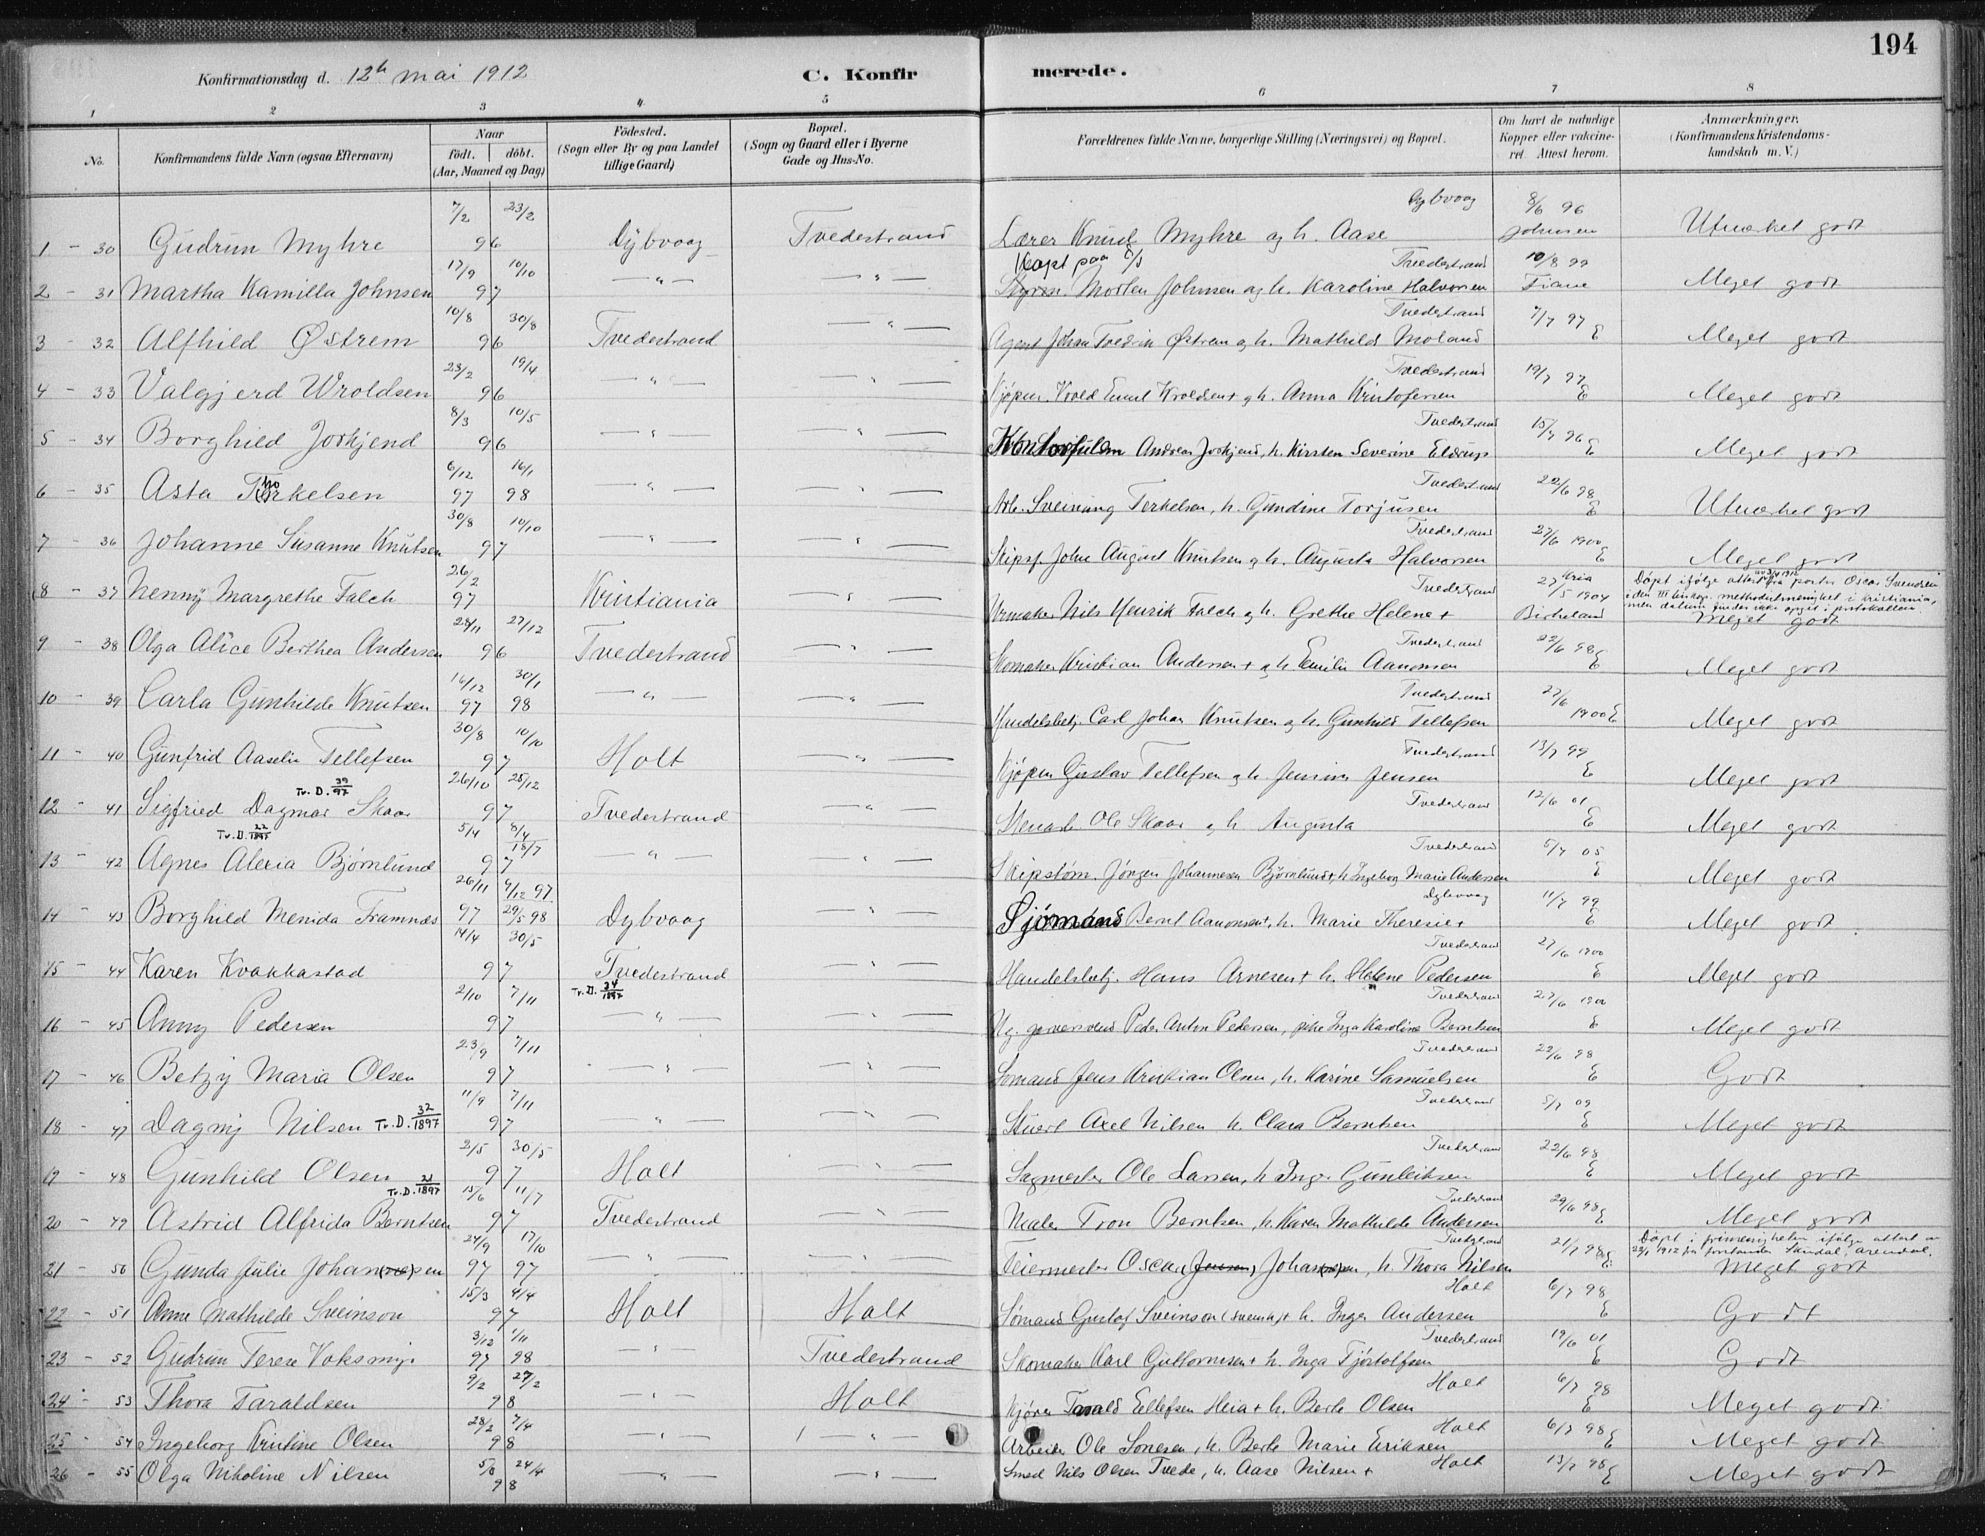 194
Konfirmationsdag d. 12te mai 1912 C. Konfirmerede.
1 2 3 4 5 6 7 8
No. Konfirmandens fulde Navn (ogsaa Efternavn) Naar født. døbt. (Aar, Maaned og Dag) Fødested. (Sogn eller By og paa Landet tillige Gaard) Bopæl. (Sogn og Gaard eller i Byerne Gade og Hus-No. Forældrenes fulde Navne, borgerlige Stilling (Næringsvei) og Bopæl. Om havt de naturlige Kopper eller vakcineret. Attest herom. Anmærkninger. (Konfirmandens Kristendomskundskab m. V.)
1 - 30 Gudrun Myhre 7/2 23/2 96 Dybvaag Tvedestrand Lærer Knud Myhre og h. Aase Dybvaag 8/6 96 Johnsen Utmerket godt
2 - 31 Martha Kamilla Johnsen 17/9 10/10 97 — " — — " — Kapt paa Morten Johnsen og h. Karoline Halvorsen Tvedestrand 10/8 99 Fiane Meget godt
3 - 32 Alfhild Østrem 10/8 30/8 96 Tvedestrand — " — Agent Johan Fredrik Østrem og h. Mathilde Moland Tvedestrand 7/7 97 E Meget godt
4 - 33 Valgjerd Wroldsen 23/2 19/4 96 — " — — " — Kjøpm. Emil Wroldsen + og h. Anna Kristofersen Tvedestrand 19/7 97 E Meget godt
5 - 34 Borghild Joskjend 8/3 10/5 96 — " — — " — Andreas Joskjend, h. Kirsten Severine Eldrup Tvedestrand 15/7 96 E Meget godt
6 - 35 Asta Torkelsen 6/12 97 16/1 98 — " — — " — Arb. Sveinung Terkelsen, h. Gundine Torjusen Tvedestrand 22/6 98 E Utmerket godt
7 - 36 Johanne Susanne Knutsen 30/8 10/10 97 — " — — " — Skipsf. John August Knutsen og h. Augusta Halvorsen Tvedestrand 27/6 1900 E Meget godt
8 - 37 Nenny Margrethe Falch 26/2 97 Kristiania — " — Urmaker Nils Henrik Falch og h. Grethe Helene + Tvedestrand Kria 27/5 1904 Birkeland Døpt ifølge attest av 3/4 1912 fra pastor Oscar Svendsen i den III biskop. methodistmenighet i Kristiania, men datum findes ikke opgit i protokollen. Meget godt
9 - 38 Olga Alice Berthea Andersen 28/11 27/12 96 Tvedestrand — " — Skomaker Kristian Andersen + og h. Emilie Aanonsen Tvedestrand 22/6 98 E Meget godt
10 - 39 Carla Gunhilde Knutsen 16/12 97 30/1 98 — " — — " — Handelsbetj. Carl Johan Knutsen og h. Gunhild Tellefsen Tvedestrand 27/6 1900 E Meget godt
11 - 40 Gunfrid Aaselie Tellefsen 30/8 10/10 97 Holt — " — Kjøpm Gustav Tellefsen og h. Jensine Jensen Tvedestrand 13/7 99 E Meget godt
12 - 41 Sigfried Dagmar Skaar Tv. D. 39/97 26/10 25/12 97 Tvedestrand — " — Stenarb. Ole Skaar og h. Augusta Tvedestrand 12/6 01 E Meget godt
13 - 42 Agnes Alexia Bjørnlund Tv. D. 22/1897 5/4 8/4 18/7 97 — " — — " — Skipstøm. Jørgen Johannesen Bjørnlund +, h. Ingeborg Marie Andersen Tvedestrand 5/7 05 E Meget godt
14 - 43 Borghild Menida Framnæs 26/11 97 4/12 97 29/5 98 Dybvaag — " — Sjømand Bernt Aanonsen +, h. Marie Theresie + Dybvaag 11/7 99 E Meget godt
15 - 44 Karen Kvakkestad 14/4 30/5 97 Tvedestrand — " — Handelsbetj. Hans Arnesen + h. Helene Pedersen Tvedestrand 27/6 1900 E Meget godt
16 - 45 Anny Pedersen 2/10 7/11 97 Tv. D. 34/1897 — " — — " — Ug. garversvend Peder Anton Pedersen, pike Inga Karoline Berntsen Tvedestrand 27/6 1900 E Meget godt
17 - 46 Betzy Maria Olsen 23/9 7/11 97 — " — — " — Sømand Jens Kristian Olsen, h. Karine Samuelsen Tvedestrand 22/6 98 E Godt
18 - 47 Dagny Nilsen Tv. D. 32/1897 11/9 7/11 97 — " — — " — Stuert Axel Nilsen h. Clara Berntsen Tvedestrand 5/7 09 E Meget godt
19 - 48 Gunhild Olsen 2/5 30/5 97 Holt — " — Sagmester Ole Larsen, h. Inge Gunleiksen Tvedestrand 22/6 98 E Meget godt
20 - 49 Astrid Alfrida Berntsen Tv. D. 21/1897 15/6 11/7 97 Tvedestrand — " — Maler Tron Berntsen, h. Karen Mathilde Andersen Tvedestrand 29/6 98 E Meget godt
21 - 50 Gunda Julie Johansen 24/9 97 17/10 97 — " — — " — Feiermester Oscar (Jensen) Johansen, h. Thora Nilsen Tvedestrand 21/7 98 E Døpt i frimenigheten ifølge attest av 22/1 1912 fra forstander Sandal, Arendal. Meget godt
22 - 51 Anne Mathilde Sveinson 15/3 4/4 97 Holt Holt Sømand Gustaf Sveinson (svensk) + h. Inger Andersen Holt 6/7 98 E Godt
23 - 52 Gudrun Terese Voksmyr 3/12 97 1/11 98 — " — Tvedestrand Skomaker Karl Guttormsen + h. Inga Fjørtolfsen Tvedestrand 19/6 01 E Godt
24 - 53 Thora Taraldsen 9/2 27/2 98 — " — Holt Kjører Tarald Ellefsen Heia + h. Berte Olsen Holt 6/7 98 E Meget godt
25 - 54 Ingeborg Kristine Olsen 28/2 7/4 98 — " — — " — Arbeider Ole Sonesen, h. Berte Marie Eriksen Holt 6/7 98 E Meget godt
26 - 55 Olga Nikoline Nilsen 24/4 98 — " — — " — Smed Nils Olsen Tvede, h. Aase Nilsen + Holt 13/7 98 E Meget godt